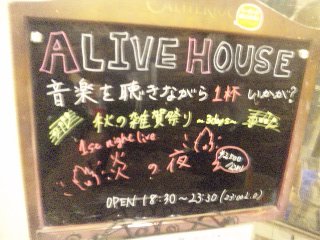 ALIVE HOUSE
音楽を聴きながら1杯いかが?
秋の雑貨祭り ~3days~
1st night live
炎の夜
OPEN 18:30~23:30 (23:00L.O)